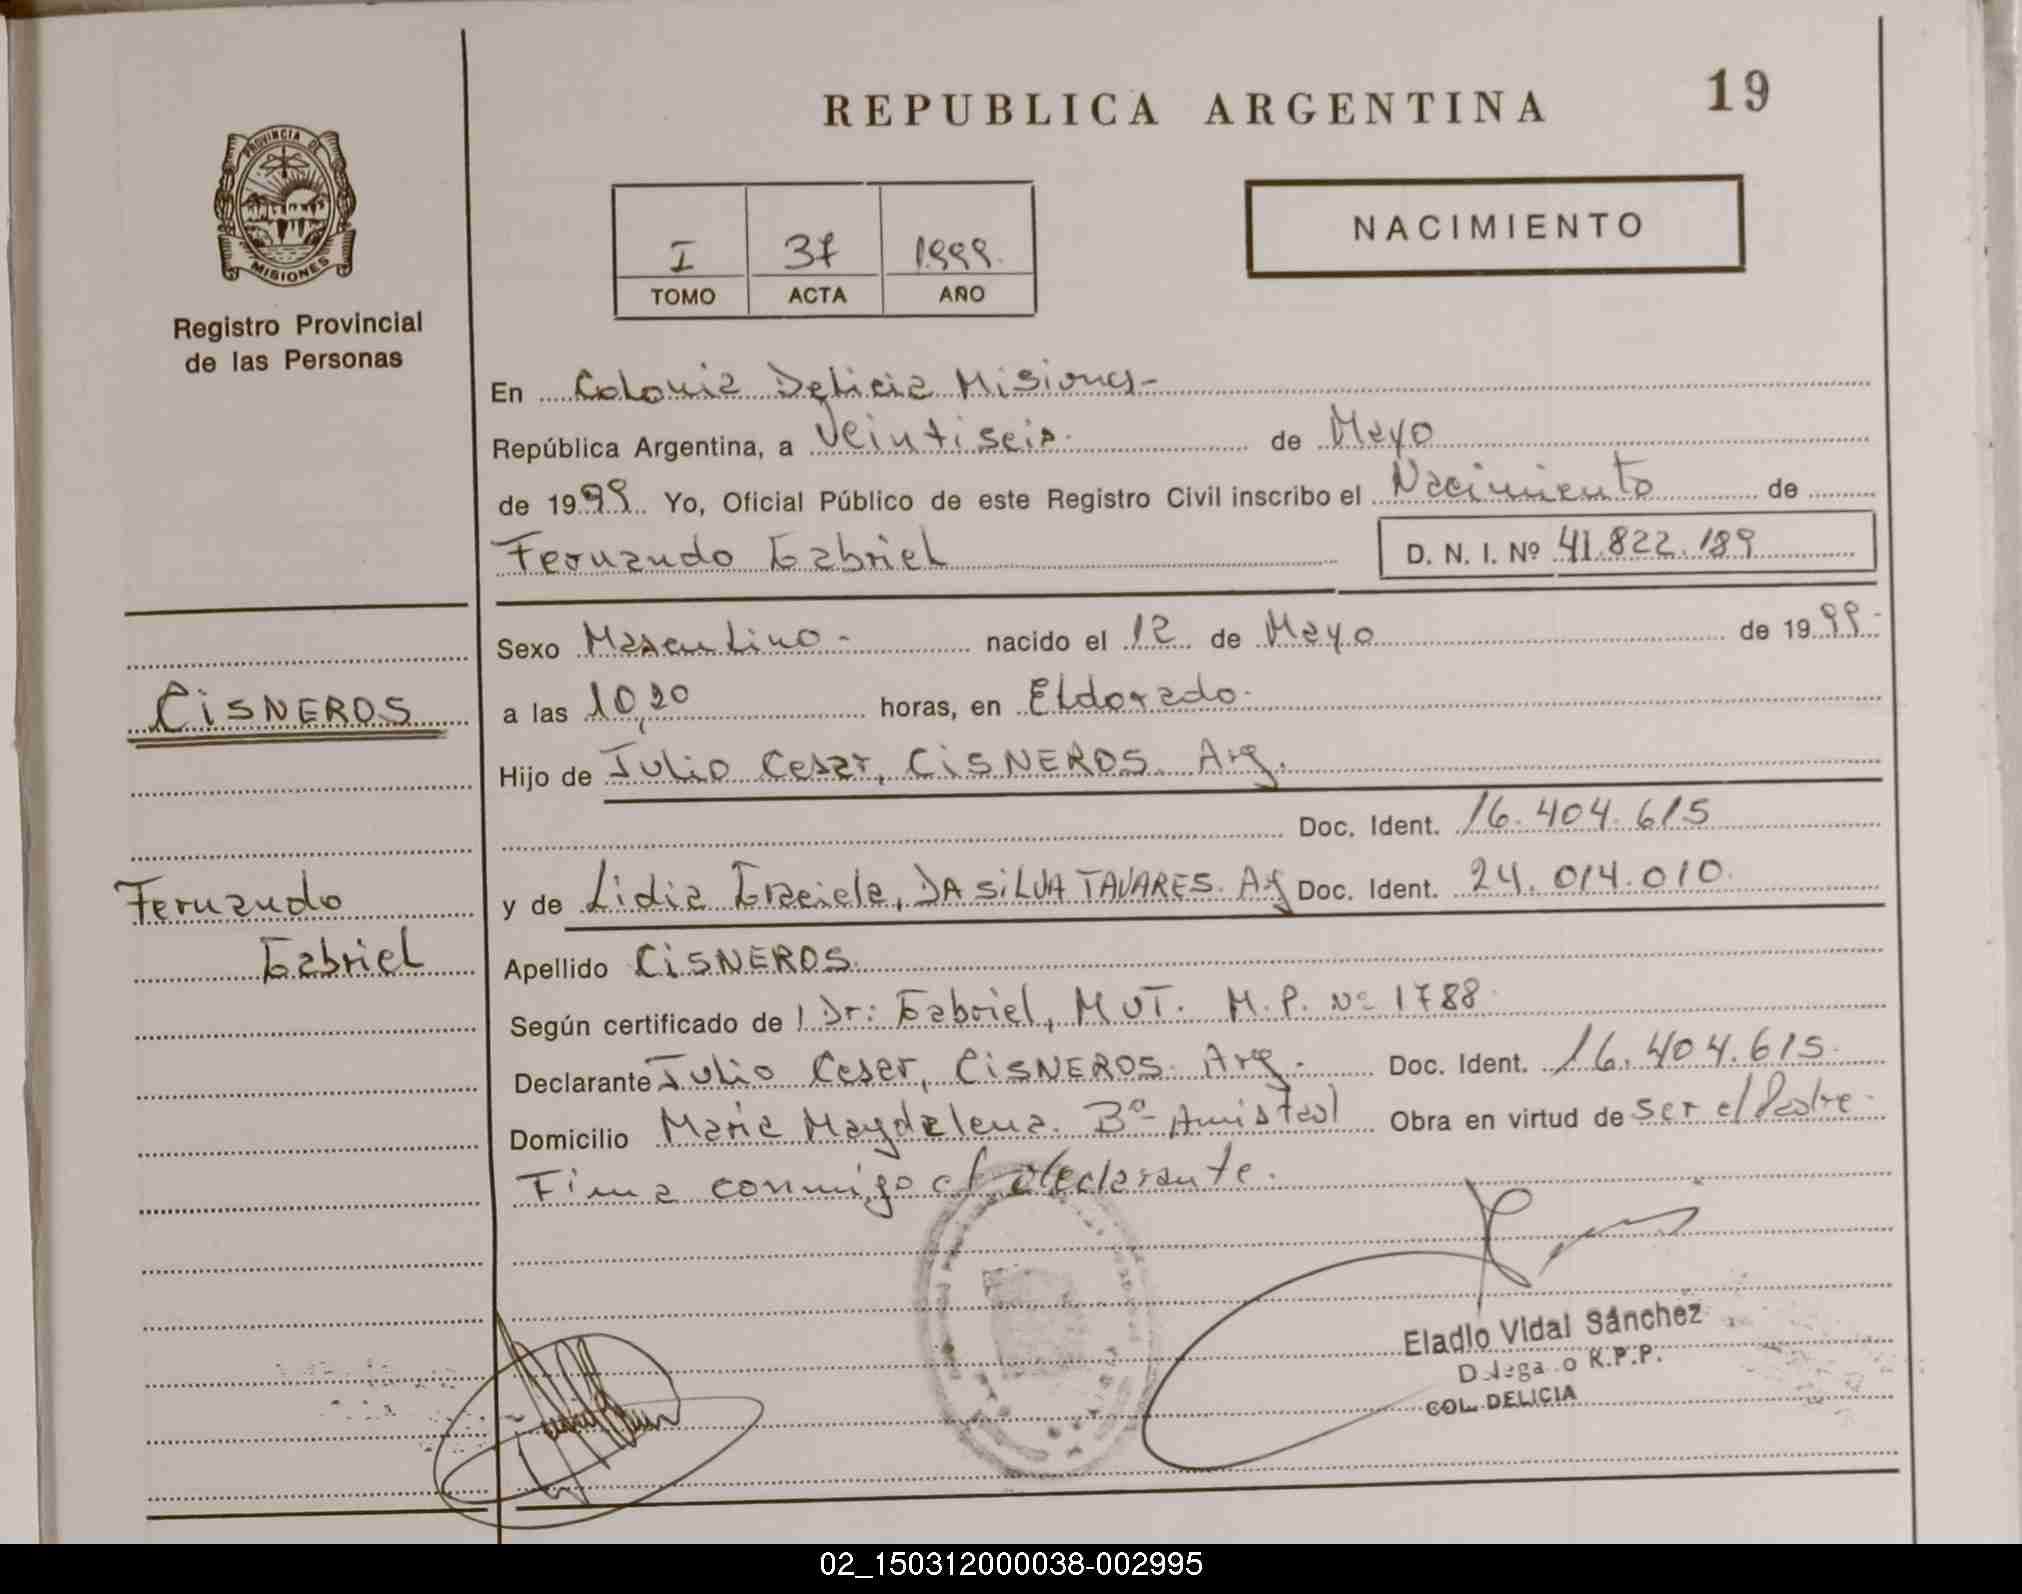 REPUBLICA ARGENTINA
19
PROVINCIA DE
MISIONES
Registro Provincial
de las Personas
I
37
1999.
TOMO
ACTA
AÑO
NACIMIENTO
En Colonia Delicia Misiones-
República Argentina, a Veintiseis. de Mayo
de 1999. Yo, Oficial Público de este Registro Civil inscribo el Nacimiento de
Fernando Gabriel
D. N. I. Nº 41.822.189
CISNEROS
Fernando
Gabriel
Sexo Masculino - nacido el 12 de Mayo de 1999-
a las 10,20 horas, en Eldorado.
Hijo de Julio Cesar, CISNEROS. Arg.
Doc. Ident. 16.404.615
y de Lidia Graciela, DA SILVA TAVARES. Arg Doc. Ident. 24.014.010.
Apellido CISNEROS
Según certificado de Dr: Gabriel, MUT. M.P. Nº 1788
Declarante Julio Cesar, CISNEROS. Arg. Doc. Ident. 16.404.615.
Domicilio Maria Magdalena. Bº- Amistad Obra en virtud de ser el Padre-
Firma conmigo el declarante.
Eladio Vidal Sánchez
R.P.P.
COL. DELICIA
02_150312000038-002995